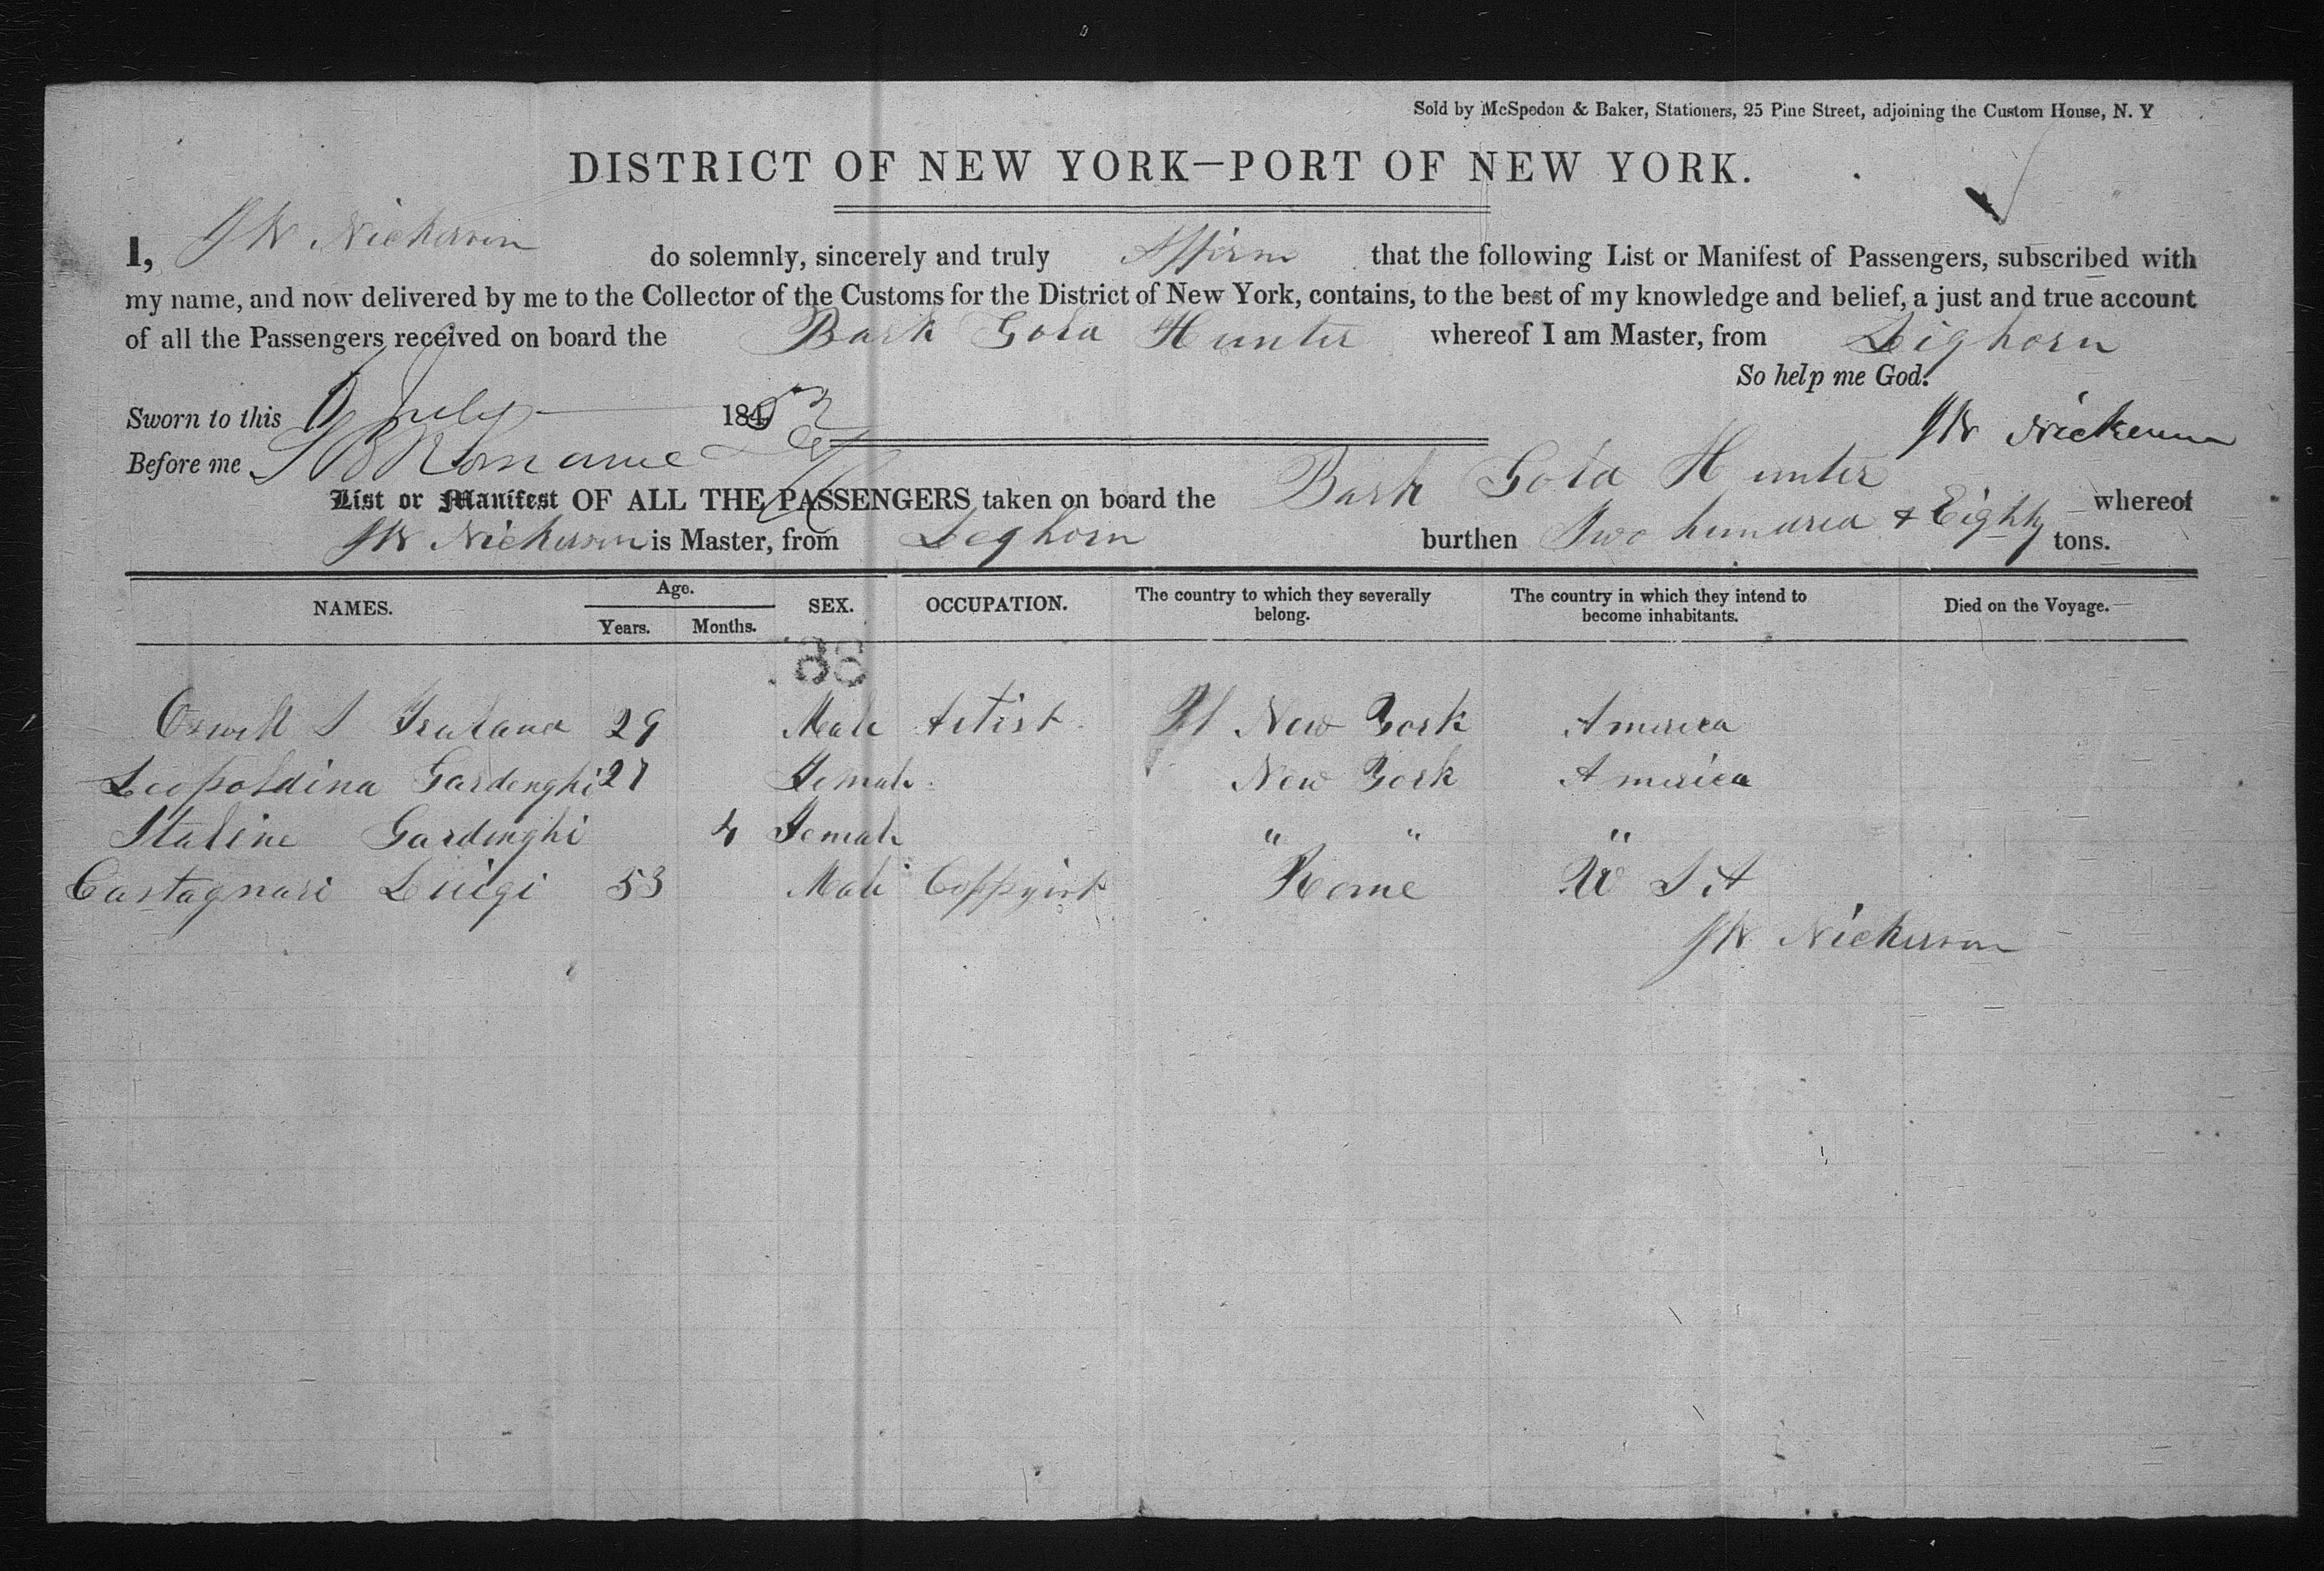 Sold by McSpedon & Baker, Stationers, 25 Pine Street, adjoining the Custom House, N. Y
DISTRICT OF NEW YORK—PORT OF NEW YORK.
I, J W Nickerson do solemnly, sincerely and truly Affirm that the following List or Manifest of Passengers, subscribed with
my name, and now delivered by me to the Collector of the Customs for the District of New York, contains, to the best of my knowledge and belief, a just and true account
of all the Passengers received on board the Bark Gold Hunter whereof I am Master, from Leighorn
So help me God.
Sworn to this July 1853
J W Nickerson
Before me
List or Manifest OF ALL THE PASSENGERS taken on board the Bark Gold Hunter whereof
J W Nickerson is Master, from Leghorn burthen Two hundred & Eighty tons.
NAMES. Age. Years. Months. SEX. OCCUPATION. The country to which they severally belong. The country in which they intend to become inhabitants. Died on the Voyage.
38
29 Male Artist New York America
Leopoldina Gardenghi 27 Female New York America
Italine Gardenghi 4 Female " " "
Castagnari Luigi 53 Male Coppyist Rome U S A
J W Nickerson